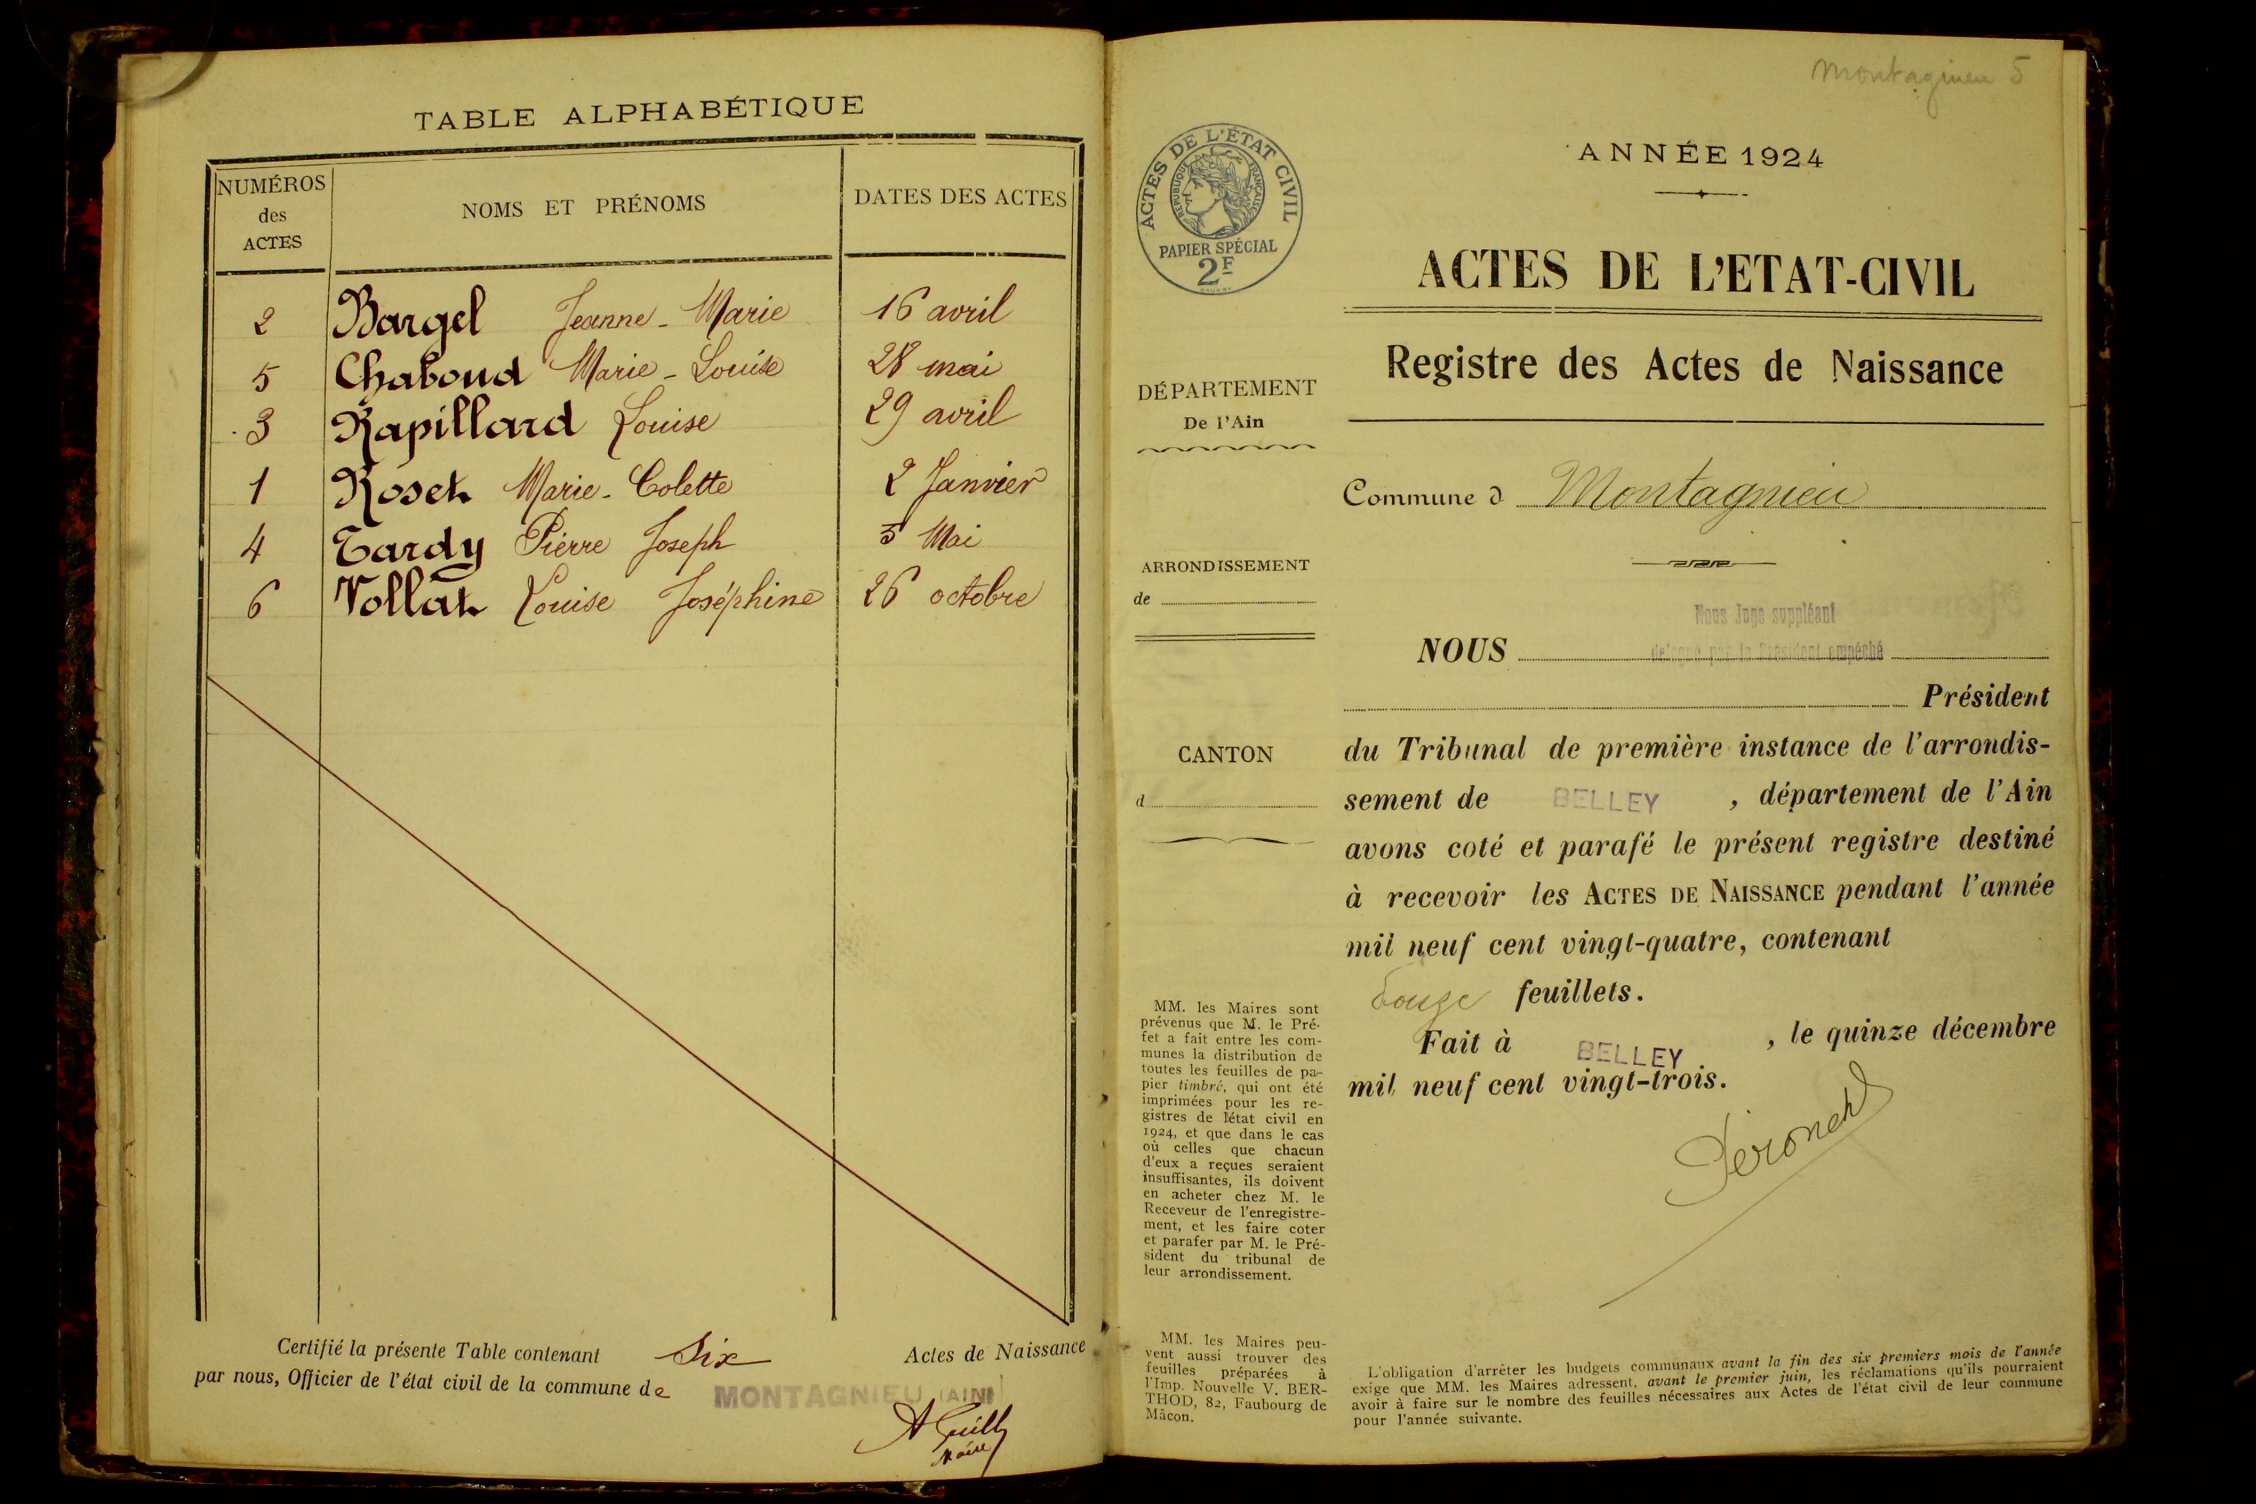 TABLE ALPHABÉTIQUE
NUMÉROS des ACTES
NOMS ET PRÉNOMS
DATES DES ACTES
2 Bargel Jeanne - Marie 16 avril
5 Chaboud Marie - Louise 28 mai
3 Rapillard Louise 29 avril
1 Roset Marie - Colette 2 Janvier
4 Tardy Pierre Joseph 3 Mai
6 Vollat Louise Joséphine 26 octobre
Certifié la présente Table contenant Six Actes de Naissance
par nous, Officier de l'état civil de la commune de MONTAGNIEU (AIN)
Maire
Montagnieu 5
ACTES DE L'ÉTAT CIVIL
RÉPUBLIQUE FRANÇAISE
PAPIER SPÉCIAL
2F
DÉPARTEMENT
De l'Ain
ARRONDISSEMENT
de
CANTON
d
MM. les Maires sont
prévenus que M. le Pré-
fet a fait entre les com-
munes la distribution de
toutes les feuilles de pa-
pier timbré, qui ont été
imprimées pour les re-
gistres de l'état civil en
1924, et que dans le cas
où celles que chacun
d'eux a reçues seraient
insuffisantes, ils doivent
en acheter chez M. le
Receveur de l'enregistre-
ment, et les faire coter
et parafer par M. le Pré-
sident du tribunal de
leur arrondissement.
MM. les Maires peu-
vent aussi trouver des
feuilles préparées à
l'Imp. Nouvelle V. BER-
THOD, 82, Faubourg de
Mâcon.
ANNÉE 1924
ACTES DE L'ETAT-CIVIL
Registre des Actes de Naissance
Commune d Montagnieu
Nous Juge suppléant
NOUS délégué par le Président empêché
Président
du Tribunal de première instance de l'arrondis-
sement de BELLEY , département de l'Ain
avons coté et parafé le présent registre destiné
à recevoir les ACTES DE NAISSANCE pendant l'année
mil neuf cent vingt-quatre, contenant
feuillets.
Fait à BELLEY , le quinze décembre
mil neuf cent vingt-trois.
L'obligation d'arrêter les budgets communaux avant la fin des six premiers mois de l'année
exige que MM. les Maires adressent, avant le premier juin, les réclamations qu'ils pourraient
avoir à faire sur le nombre des feuilles nécessaires aux Actes de l'état civil de leur commune
pour l'année suivante.